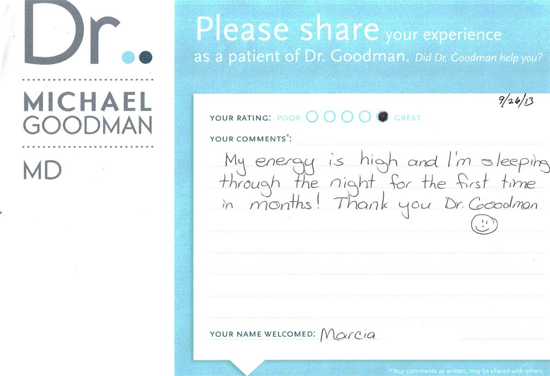 Dr..
MICHAEL
GOODMAN
MD
Please share your experience
as a patient of Dr. Goodman. Did Dr. Goodman help you?
9/26/13
YOUR RATING: POOR GREAT
YOUR COMMENTS*:
My energy is high and I'm sleeping
through the night for the first time
in months! Thank you Dr. Gooodman
YOUR NAME WELCOMED: Marcia
*Your comments as written, may be shared with others.